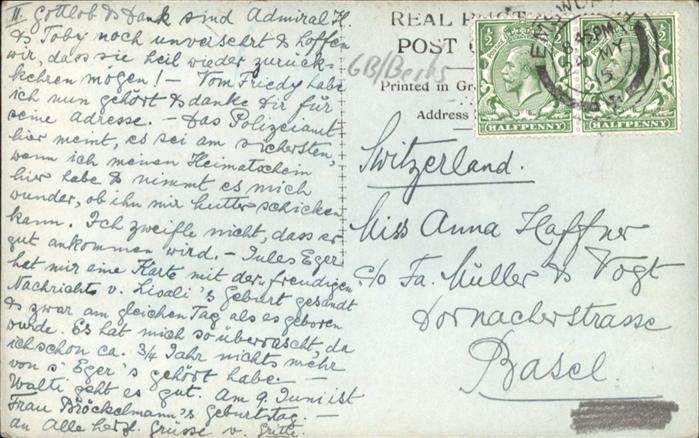 II Gottlob & Dank sind Admiral H.
& Toby noch unversehrt & hoffen
wir, dass sie heil wieder zurück-
kehren mögen! – Vom Friedy habe
ich nun gehört & danke Dir für
seine Adresse. – Das Polizeiamt
hier meint, es sei am sichersten,
wenn ich meinen Heimatschein
hier habe & nimmt es mich
wunder, ob ihn mir Mutter schicken
kann. Ich zweifle nicht, dass er
gut ankommen wird. – Jules Eger
hat mir eine Karte mit der freudigen
Nachricht v. Lisali's Geburt gesandt
& zwar am gleichen Tag als es geboren
wurde. Es hat mich so überrascht, da
ich schon ca. 3/4 Jahr nichts mehr
von s' Eger's gehört habe –
Walti geht es gut. Am 9. Juni ist
Frau Bröckelmann's Geburtstag. –
an Alle herzl. Grüsse v.
REAL
POST
GB/Berks
Printed in
Address
HALFPENNY
HALFPENNY
8.45PM
MY
15
Switzerland.
Miss Anna Haffner
c/o Fa. Müller & Vogt
Dornacherstrasse
Basel